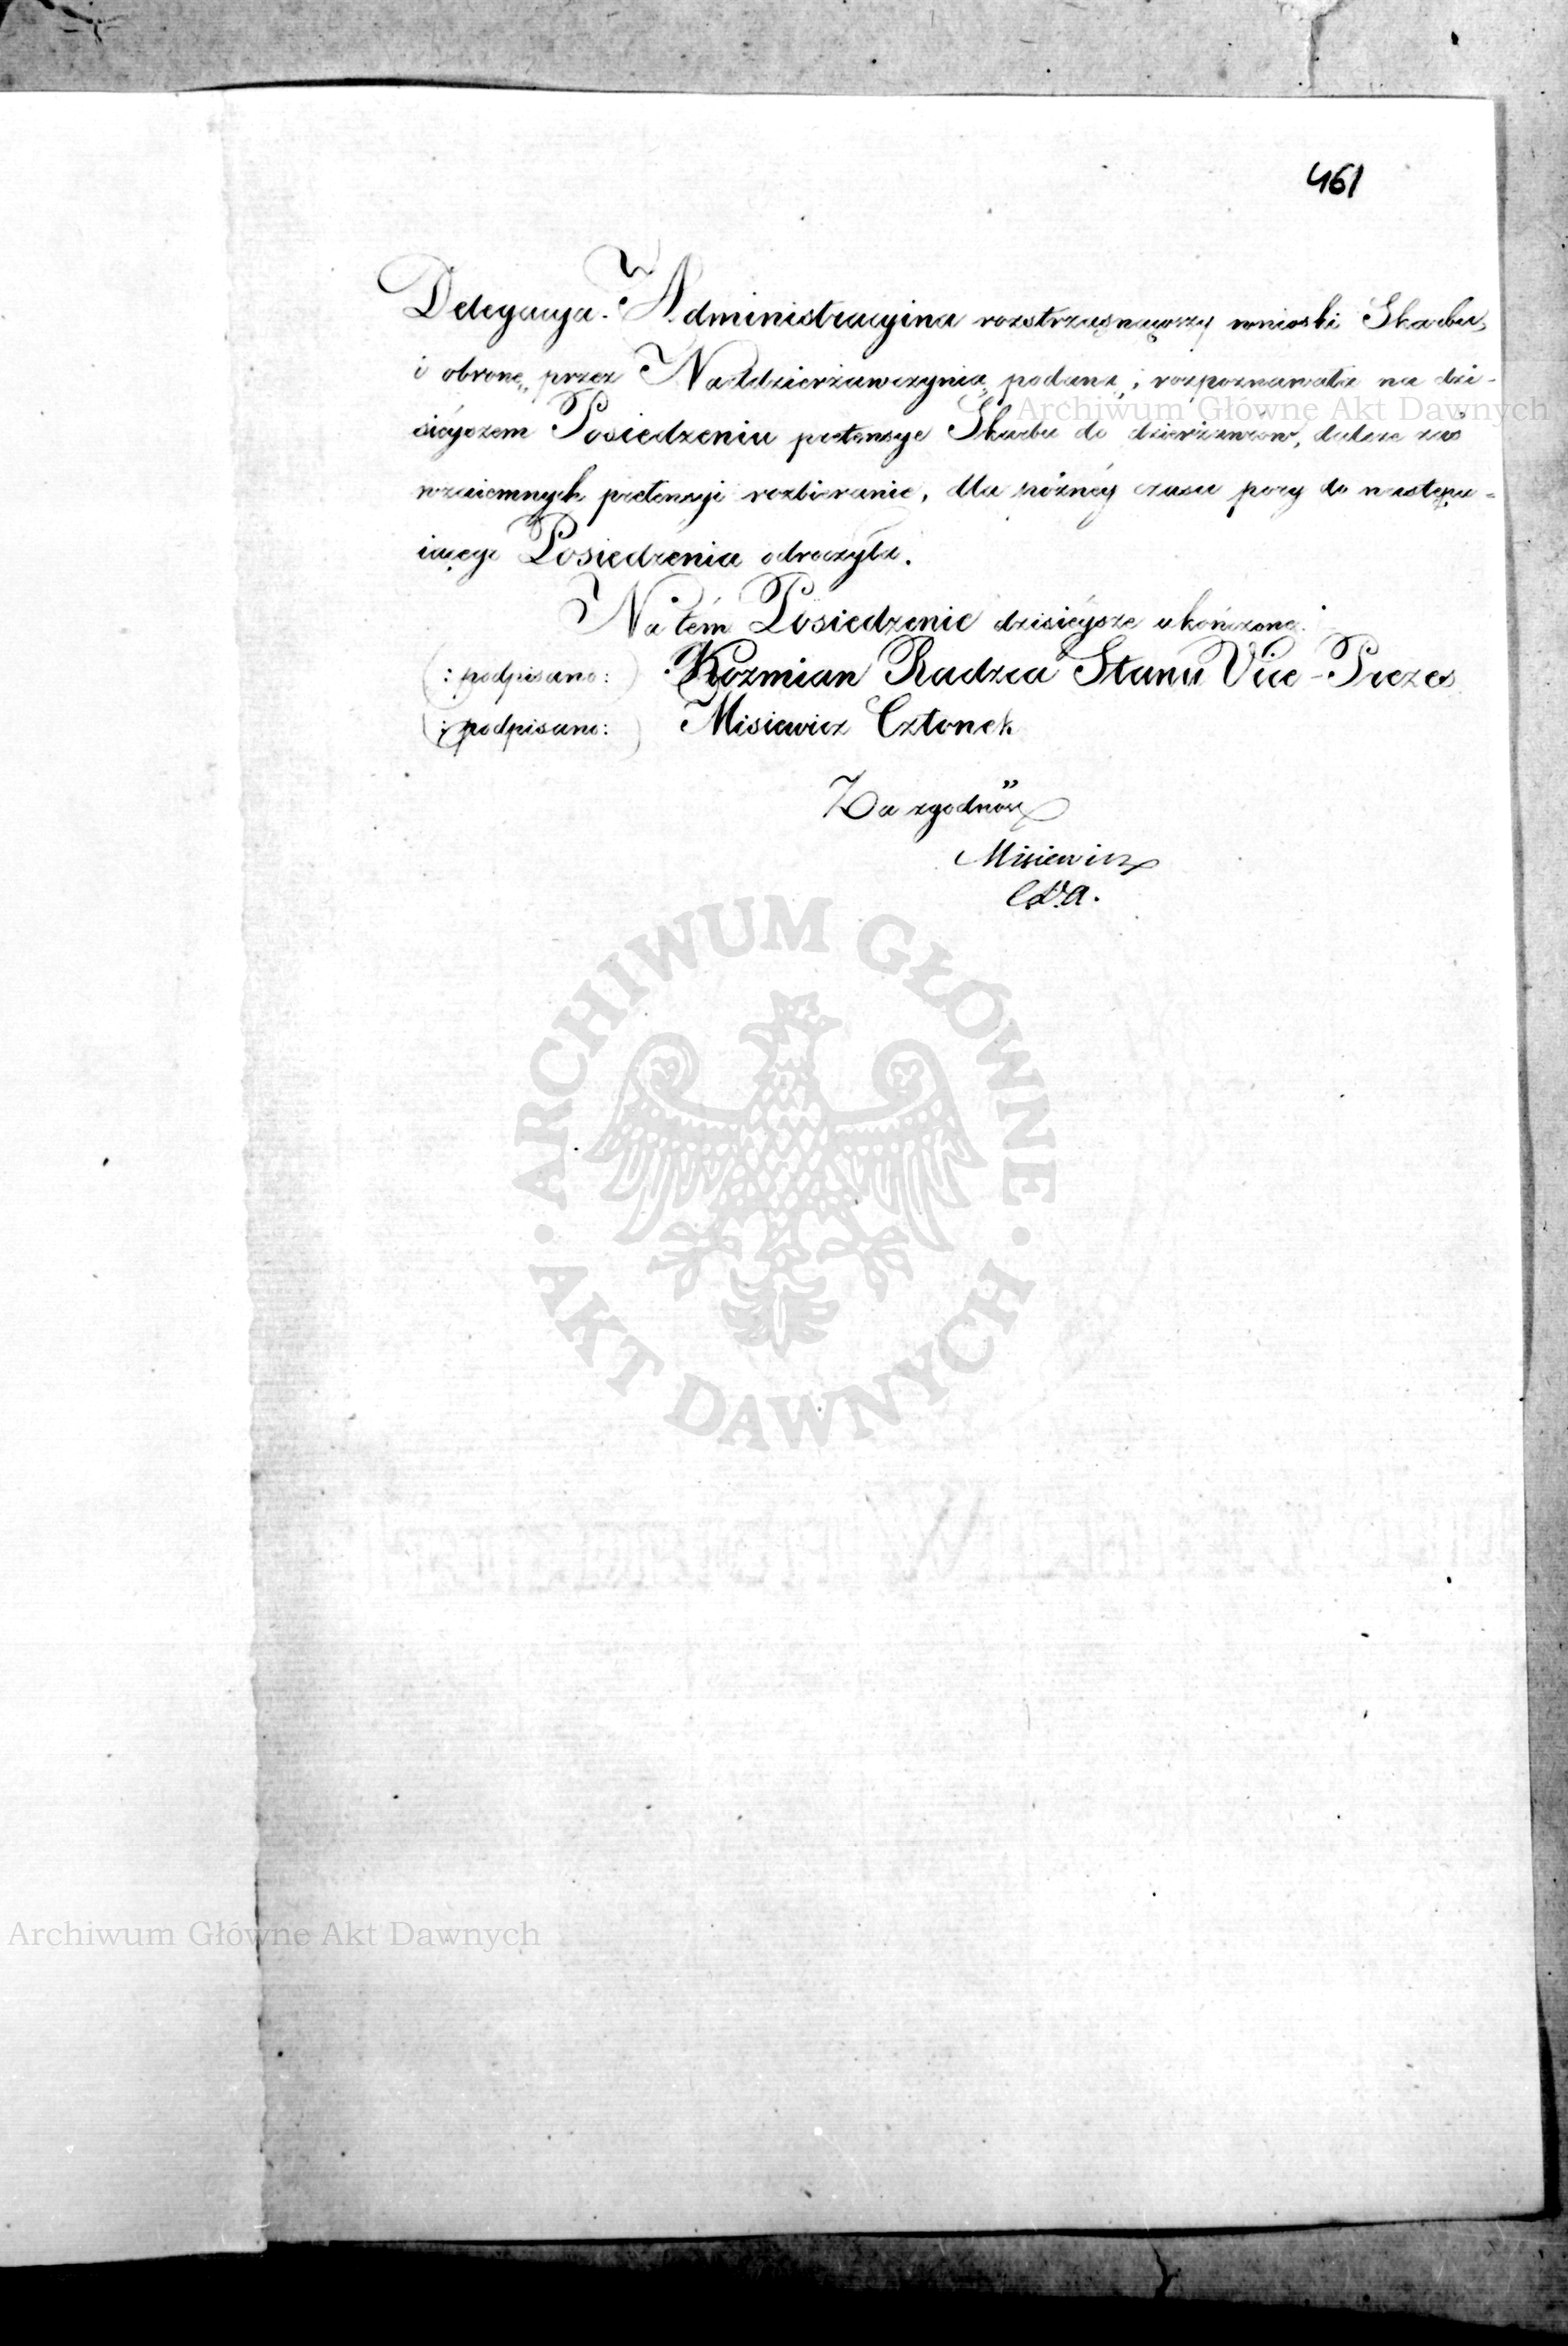 461
Delegacya Administracyina roztrząsnąwszy wnioski Skarbu,
i obronę przez Naddzierżawczynią podaną, i rozpoznawała na dzi-
sieyszem Posiedzeniu pretensye Skarbu do dzierżawców, dalsze zaś
wzaiemnych pretensyi rozbieranie, dla późnéy czasu pory do następu-
iącego Posiedzenia odroczyła.
Na tém Posiedzenie dzisiéysze ukończono.
(: podpisano: ) Kozmian Radzca Stanu Vice-Prezes
(: podpisano: ) Misiewicz Członek
Za zgodność
Misiewicz
Archiwum Główne Akt Dawnych
ARCHIWUM GŁÓWNE
AKT DAWNYCH
Archiwum Główne Akt Dawnych